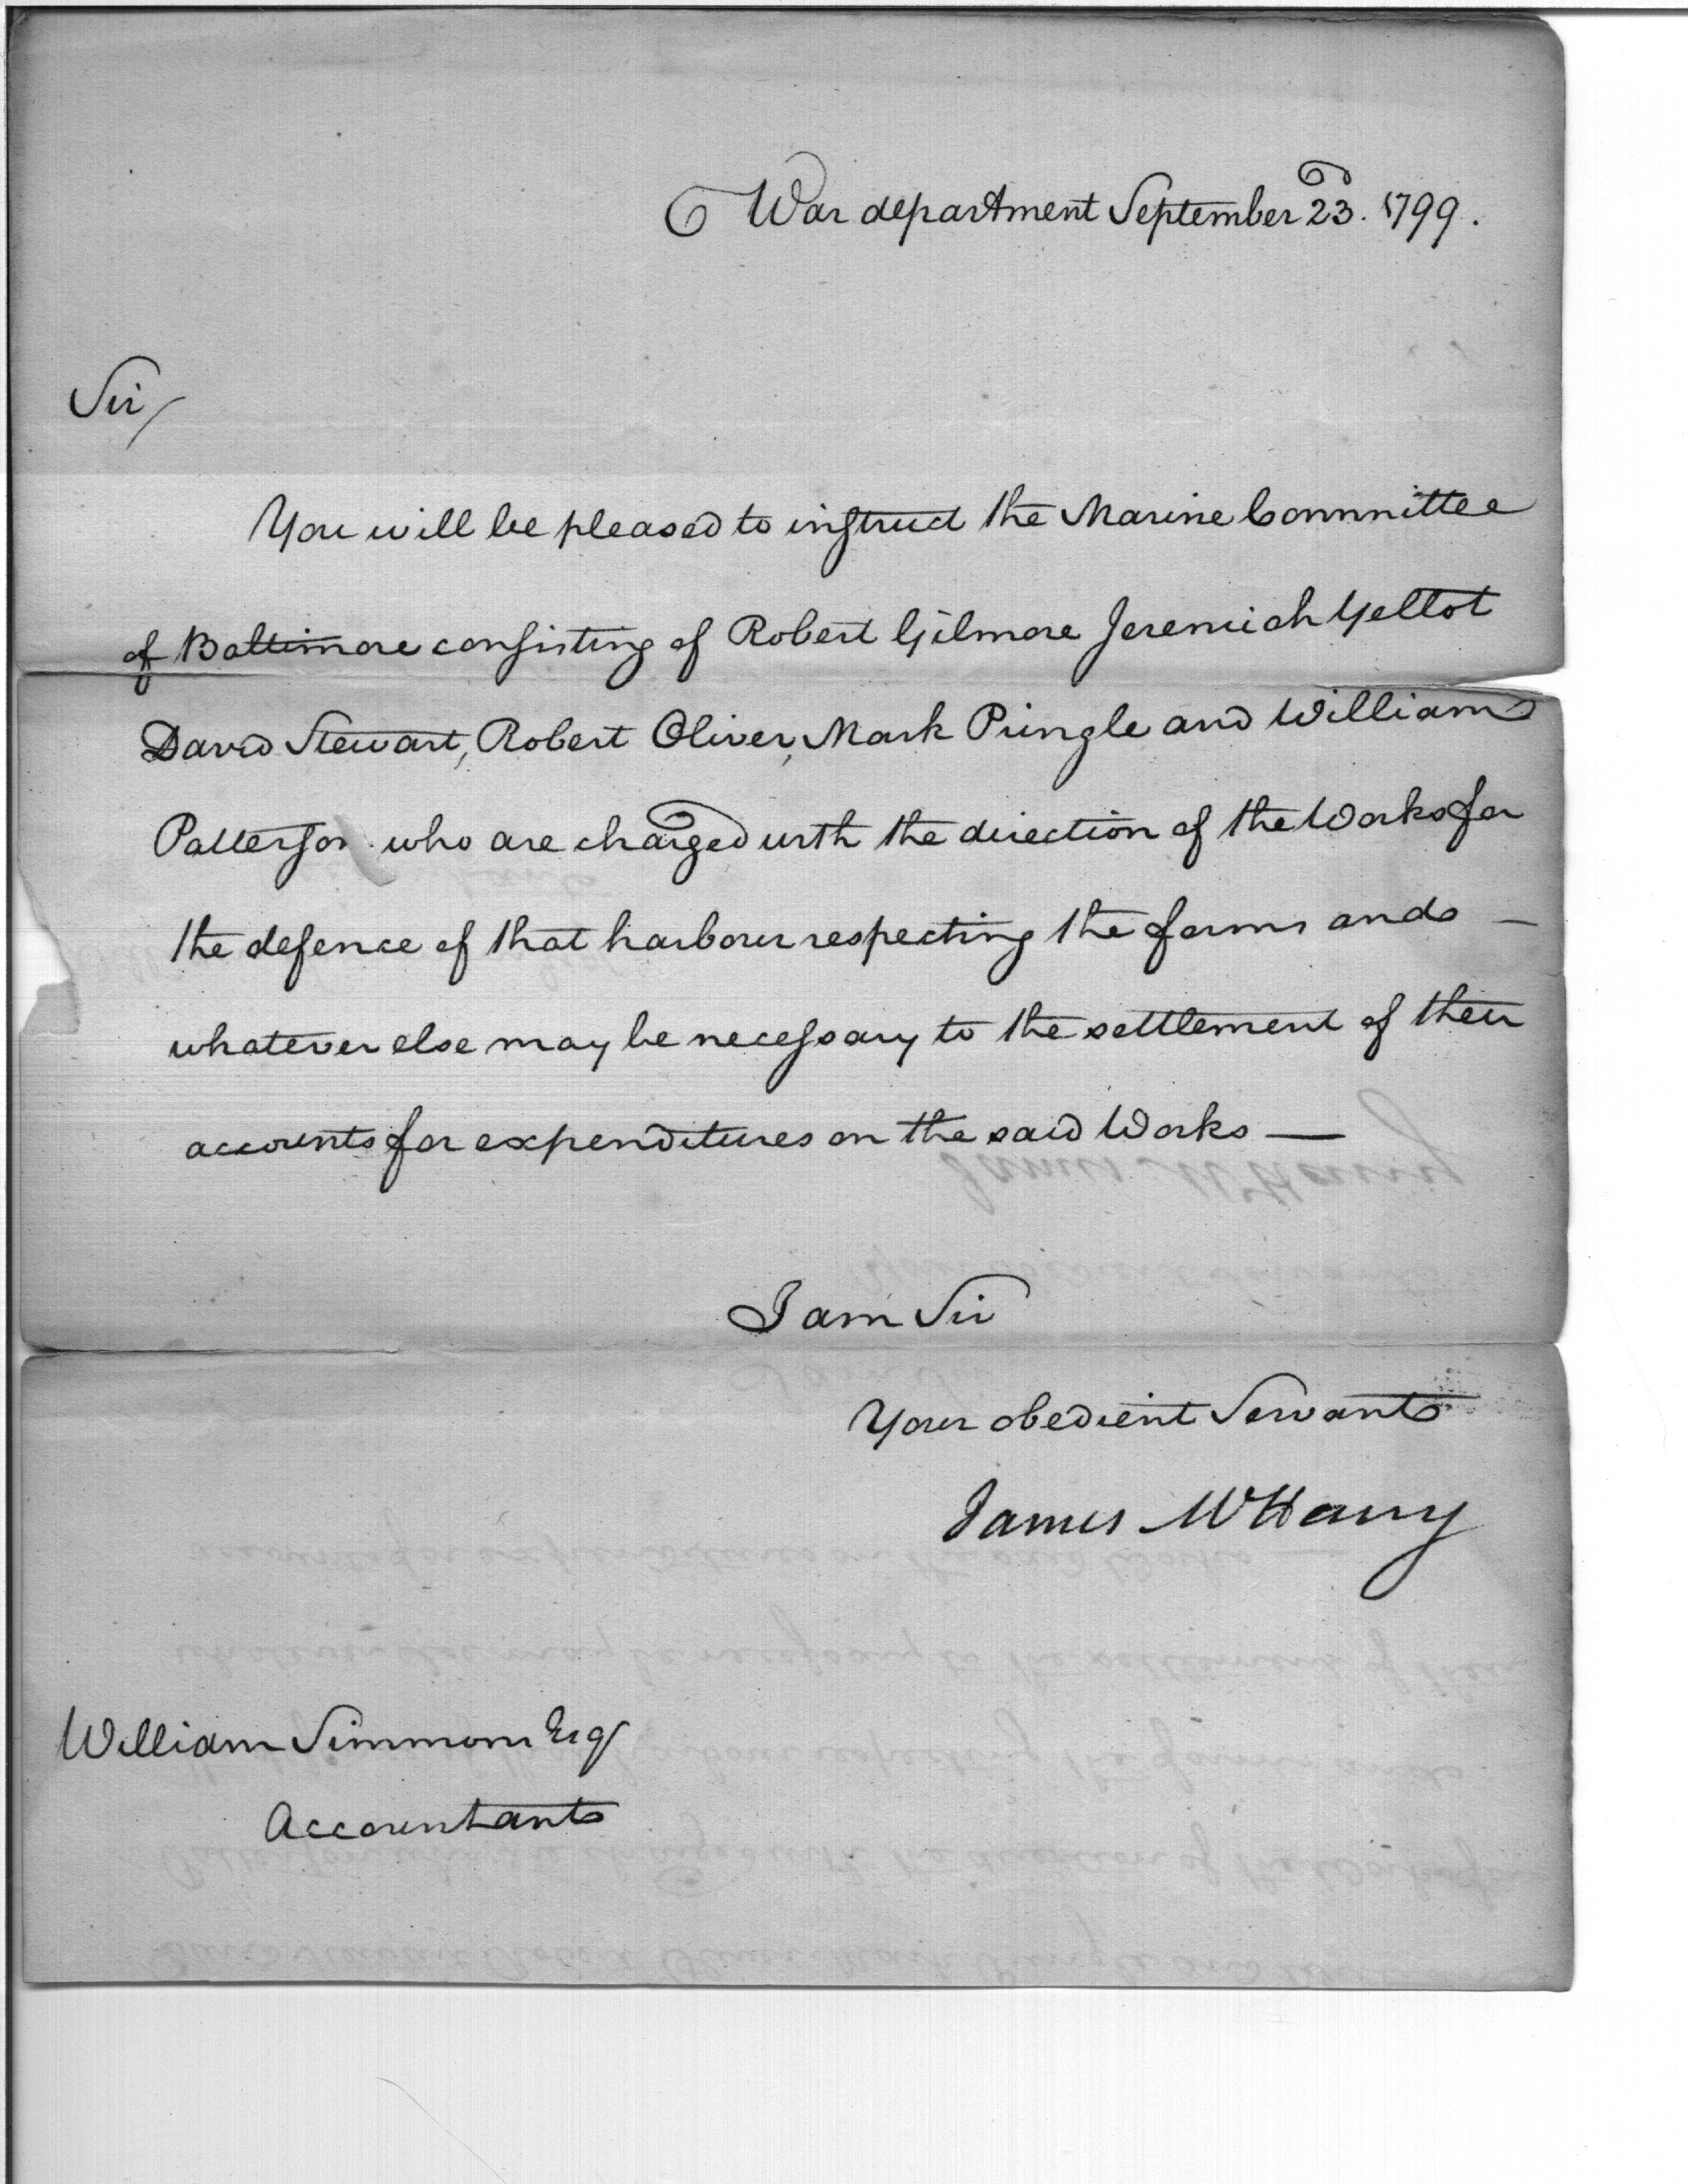 War department September 23d. 1799.
Sir/
You will be pleased to instruct the Marine Committee
of Baltimore consisting of Robert Gilmore Jeremiah Yellot
David Stewart, Robert Oliver, Mark Pringle and William
Patterson who are charged with the direction of the Works for
the defence of that harbour respecting the forms and —
whatever else may be necessary to the settlement of their
accounts for expenditures on the said Works —
I am Sir
Your obedient Servant
James McHenry
William Simmons Esq
Accountant